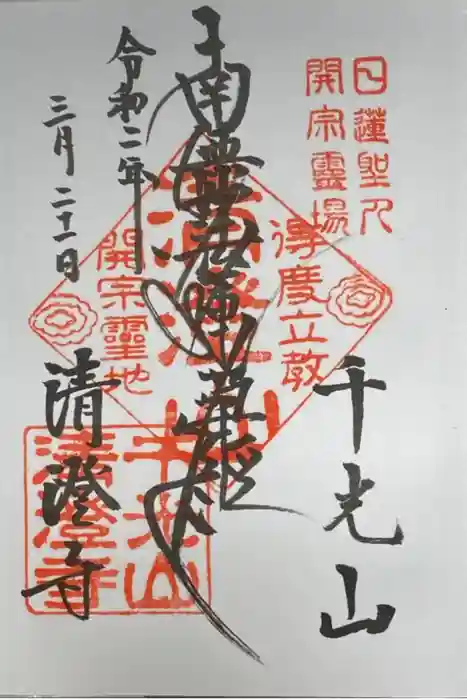 日蓮聖人
開宗靈場
千光山
得度立教
南無妙法蓮華経
開宗靈地
令和二年
三月二十一日
清澄寺
千光山
清澄寺